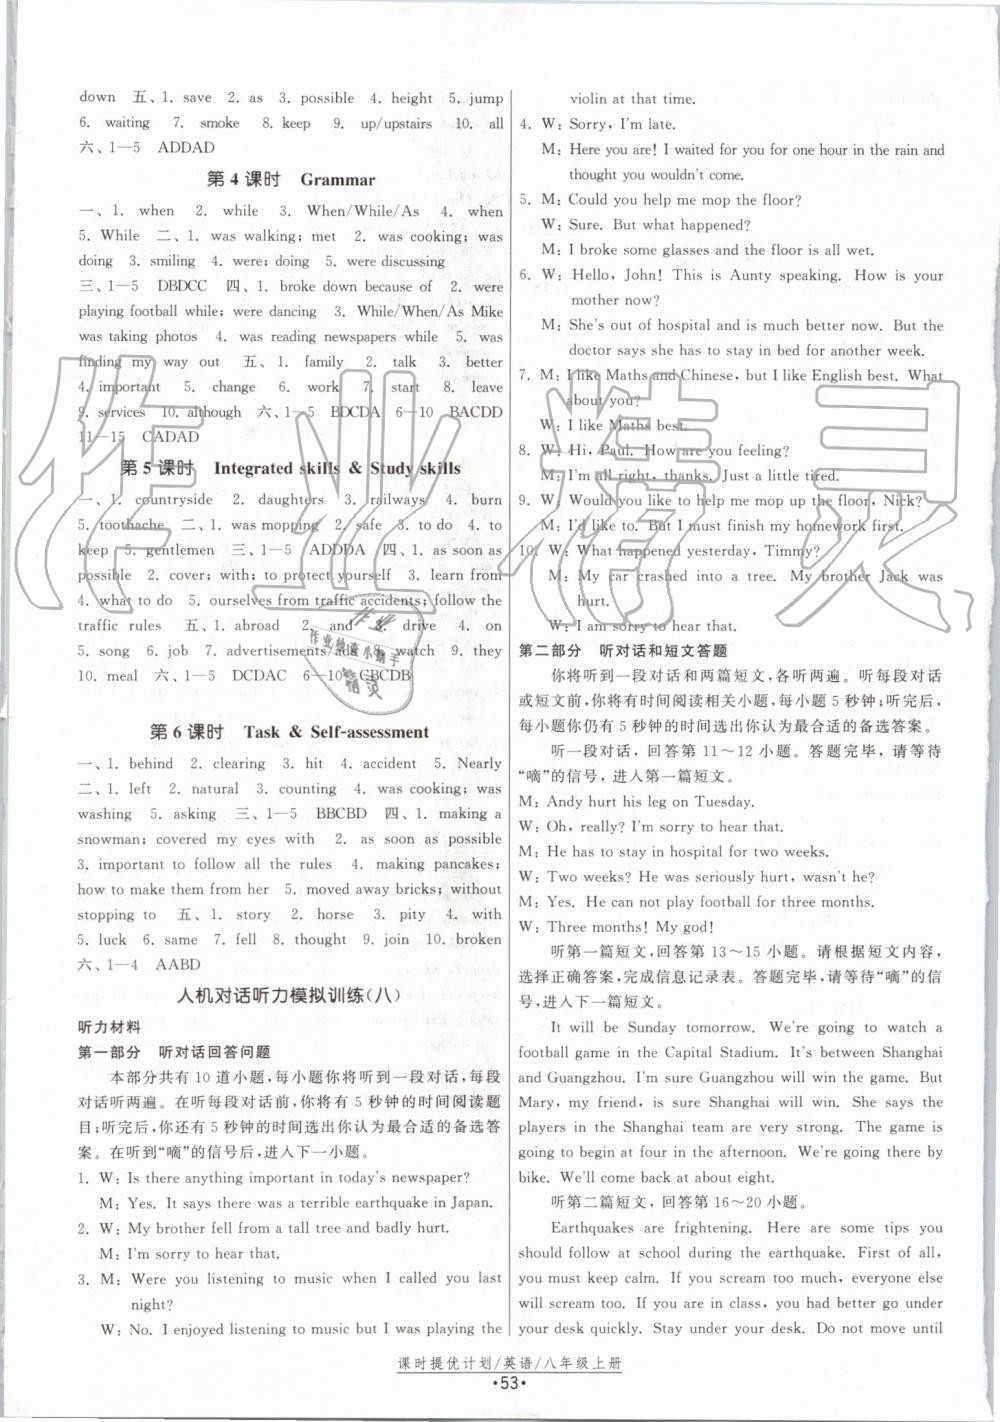 down 五、1. save 2. as 3. possible 4. height 5. jump
6. waiting 7. smoke 8. keep 9. up/upstairs 10. all
六、1—5 ADDAD
第 4 课时 Grammar
一、1. when 2. while 3. When/While/As 4. when
5. While 二、1. was walking; met 2. was cooking; was
doing 3. smiling 4. were; doing 5. were discussing
三、1—5 DBDCC 四、1. broke down because of 2. were
playing football while; were dancing 3. While/When/As Mike
was taking photos 4. was reading newspapers while 5. was
finding my way out 五、1. family 2. talk 3. better
4. important 5. change 6. work 7. start 8. leave
9. services 10. although 六、1—5 BDCDA 6—10 BACDD
11—15 CADAD
第 5 课时 Integrated skills & Study skills
一、1. countryside 2. daughters 3. railways 4. burn
5. toothache 二、1. was mopping 2. safe 3. to do 4. to
keep 5. gentlemen 三、1—5 ADDDA 四、1. as soon as
possible 2. cover; with; to protect yourself 3. learn from
4. what to do 5. ourselves from traffic accidents; follow the
traffic rules 五、1. abroad 2. and 3. drive 4. on
5. song 6. job 7. advertisements/ads 8. watch 9. they
10. meal 六、1—5 DCDAC 6—10 CBCDB
第 6 课时 Task & Self-assessment
一、1. behind 2. clearing 3. hit 4. accident 5. Nearly
二、1. left 2. natural 3. counting 4. was cooking; was
washing 5. asking 三、1—5 BBCBD 四、1. making a
snowman; covered my eyes with 2. as soon as possible
3. important to follow all the rules 4. making pancakes;
how to make them from her 5. moved away bricks; without
stopping to 五、1. story 2. horse 3. pity 4. with
5. luck 6. same 7. fell 8. thought 9. join 10. broken
六、1—4 AABD
人机对话听力模拟训练(八)
听力材料
第一部分 听对话回答问题
本部分共有 10 道小题,每小题你将听到一段对话,每段
对话听两遍。在听每段对话前,你将有 5 秒钟的时间阅读题
目;听完后,你还有 5 秒钟的时间选出你认为最合适的备选答
案。在听到“嘀”的信号后,进入下一小题。
1. W: Is there anything important in today's newspaper?
M: Yes. It says there was a terrible earthquake in Japan.
2. W: My brother fell from a tall tree and badly hurt.
M: I'm sorry to hear that.
3. M: Were you listening to music when I called you last
night?
W: No. I enjoyed listening to music but I was playing the
violin at that time.
4. W: Sorry, I'm late.
M: Here you are! I waited for you for one hour in the rain and
thought you wouldn't come.
5. M: Could you help me mop the floor?
W: Sure. But what happened?
M: I broke some glasses and the floor is all wet.
6. W: Hello, John! This is Aunty speaking. How is your
mother now?
M: She's out of hospital and is much better now. But the
doctor says she has to stay in bed for another week.
7. M: I like Maths and Chinese, but I like English best. What
about you?
W: I like Maths best.
8. W: Hi, Paul. How are you feeling?
M: I'm all right, thanks. Just a little tired.
9. W: Would you like to help me mop up the floor, Nick?
M: I'd like to. But I must finish my homework first.
10. W: What happened yesterday, Timmy?
M: My car crashed into a tree. My brother Jack was
hurt.
W: I am sorry to hear that.
第二部分 听对话和短文答题
你将听到一段对话和两篇短文,各听两遍。听每段对话
或短文前,你将有时间阅读相关小题,每小题 5 秒钟;听完后,
每小题你仍有 5 秒钟的时间选出你认为最合适的备选答案。
听一段对话,回答第 11～12 小题。答题完毕,请等待
“嘀”的信号,进入第一篇短文。
M: Andy hurt his leg on Tuesday.
W: Oh, really? I'm sorry to hear that.
M: He has to stay in hospital for two weeks.
W: Two weeks? He was seriously hurt, wasn't he?
M: Yes. He can not play football for three months.
W: Three months! My god!
听第一篇短文,回答第 13～15 小题。请根据短文内容,
选择正确答案,完成信息记录表。答题完毕,请等待“嘀”的信
号,进入下一篇短文。
It will be Sunday tomorrow. We're going to watch a
football game in the Capital Stadium. It's between Shanghai
and Guangzhou. I'm sure Guangzhou will win the game. But
Mary, my friend, is sure Shanghai will win. She says the
players in the Shanghai team are very strong. The game is
going to begin at four in the afternoon. We're going there by
bike. We'll come back at about eight.
听第二篇短文,回答第 16～20 小题。
Earthquakes are frightening. Here are some tips you
should follow at school during the earthquake. First of all,
you must keep calm. If you scream too much, everyone else
will scream too. If you are in class, you had better go under
your desk quickly. Stay under your desk. Do not move until
课时提优计划/英语/八年级上册
·53·
作业精灵
作业
作业快速小助手
精灵